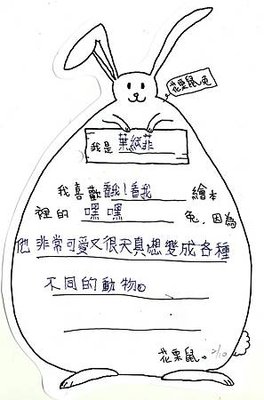 花栗鼠兔
我是 葉紙菲
我喜歡翻!看我 繪本
裡的 嘿嘿 兔,因為
他非常可愛又很天真想變成各種
不同的動物。
花栗鼠。2/10